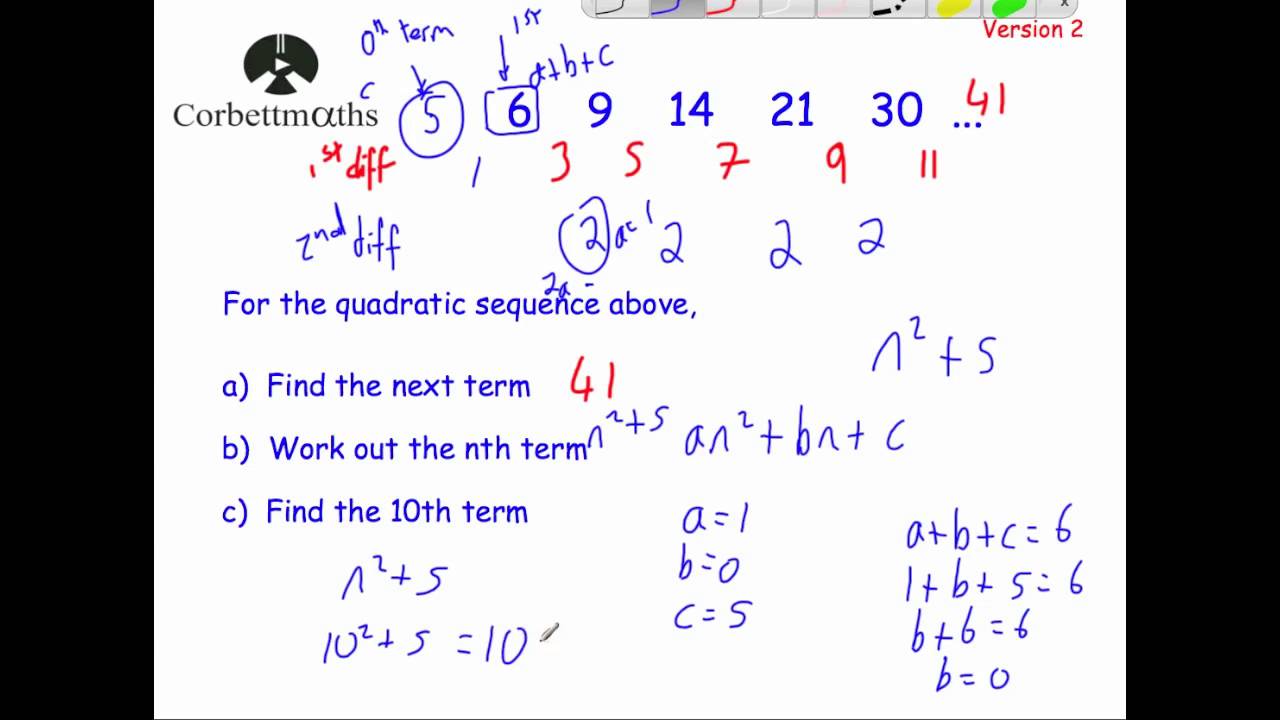 Version 2
0th term 1st
c a+b+c
Corbettmαths 5 6 9 14 21 30 ... 41
1st diff 1 3 5 7 9 11
2nd diff 2 a=1 2 2 2
2a =
For the quadratic sequence above,
n²+5
a) Find the next term 41
b) Work out the nth term n²+5 an²+bn+c
c) Find the 10th term
a=1 a+b+c=6
n²+5 b=0 1+b+5=6
c=5 b+6=6
10²+5 =10 b=0